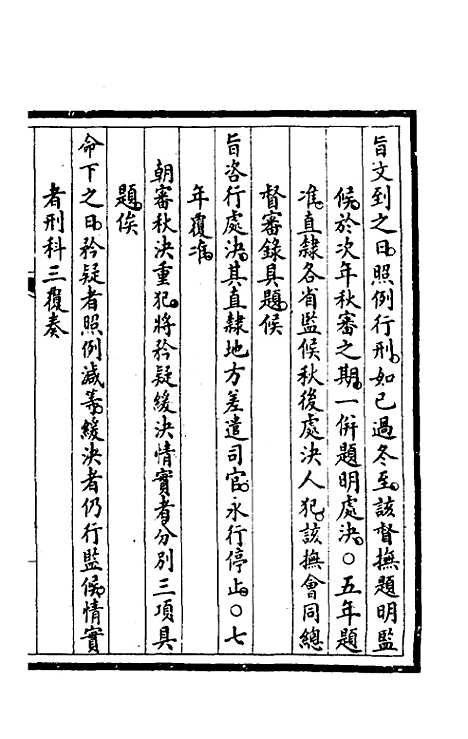 旨文到之日照例行刑如已過冬至該督撫題明監
候於次年秋審之期一併題明處決〇五年題
准直隸各省監候秋後處決人犯該撫會同總
督審錄具題候
旨咨行處決其直隸地方差遣司官永行停止〇七
年覆准
朝審秋決重犯將矜疑緩決情實者分別三項具
題俟
命下之日矜疑者照例減等緩決者仍行監候情實
者刑科三覆奏